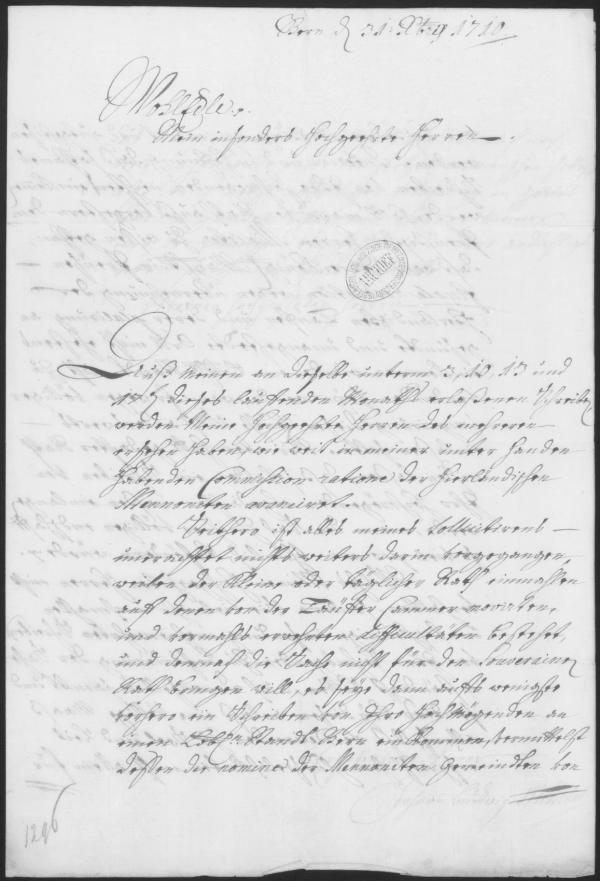 Bern d 31. Xbris 1710.
WohlEdle.
Mein insonders Hochgeehrte Herren
ARCHIEF
Auß meinen an dieselbe unterm 3, 10, 13 und
dieses lauffenden Monaths erlaßenen Schreiben
werden Meine Hochgeehrte Herren des mehreren
ersehen haben, wie weit in meiner unter handen
habenden Commission ratione der hierländischen
Mennoniten avanciret.
Seithero ist alles meines Sollicitirens
unerachtet nichts weiters darin vorgegangen,
weilen der Kleine oder tägliche Rath einmahlen
auf denen von der Täuffer Cammer movirten,
und vormahls erwehnten difficultäten bestehet,
und demnach die Sach nicht für den Souverainen
Rath bringen will, es seye dann aufs wenigste
vorhero ein Schreiben von Ihro Hochmögenden an
einen Lobl. Standt Bern einkommen, vermittelst
dessen die nomine der Mennoniten Gemeindten von
1296